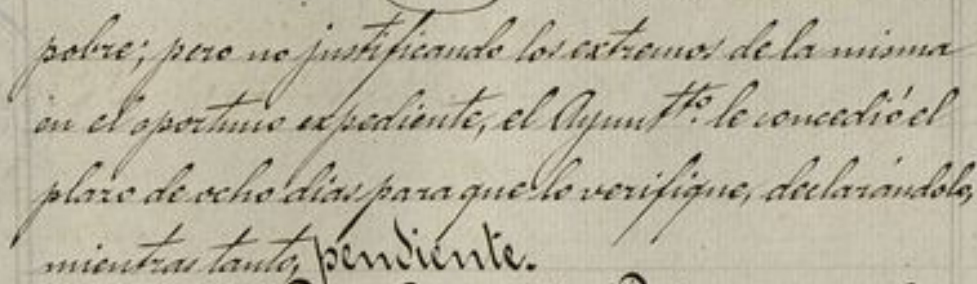 pobre; pero no justificando los extremos de la misma
en el oportuno expediente, el Ayunt.to le concedió el
plazo de ocho días para que lo verifique, declarándole,
mientras tanto, pendiente.